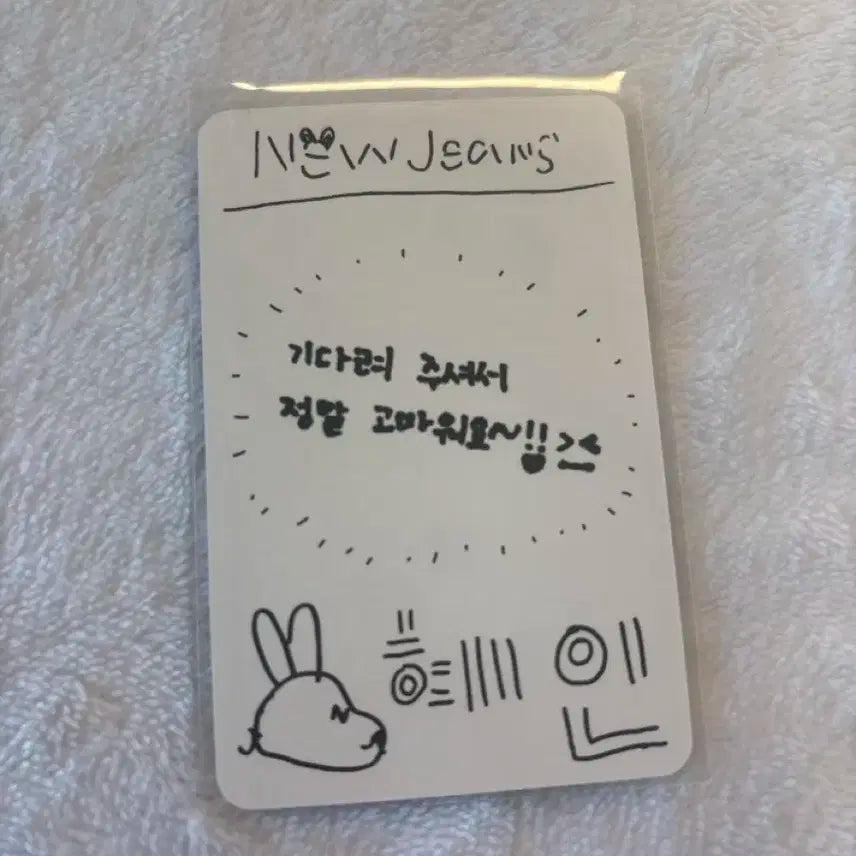 NEWJeans
기다려 주셔서
정말 고마워요~!! ><
혜인